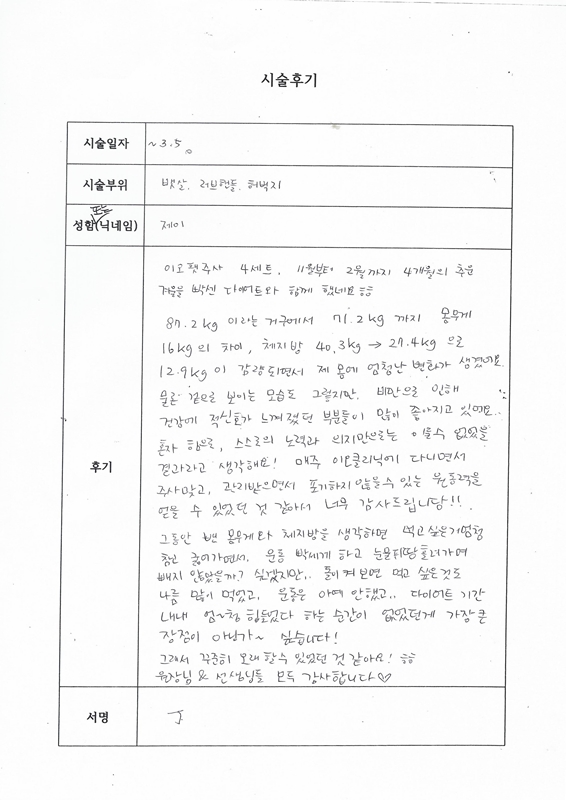 시술후기
시술일자 ~3.5.
시술부위 뱃살. 러브핸들. 허벅지
또는
성함(닉네임) 제이
후기
이오팻주사 4세트. 11월부터 2월까지 4개월의 추운
겨울을 빡센 다이어트와 함께 했네요 ㅎㅎ
87.2kg 이라는 거구에서 71.2kg 까지 몸무게
16kg의 차이, 체지방 40.3kg → 27.4kg 으로
12.9kg이 감량되면서 제 몸에 엄청난 변화가 생겼어요.
물론 겉으로 보이는 모습도 그렇지만. 비만으로 인해
건강에 적신호가 느껴졌던 부분들이 많이 좋아지고 있어요..
혼자 힘으로, 스스로의 노력과 의지만으로는 이룰수 없었을
결과라고 생각해요! 매주 이오클리닉에 다니면서
주사맞고, 관리받으면서 포기하지 않을수 있는 원동력을
얻을 수 있었던 것 같아서 너무 감사드립니당!!
그동안 뺀 몸무게와 체지방을 생각하면 먹고싶은거 엄청
참고 굶어가면서. 운동 빡세게 하고 눈물피땀 흘려가며
빼지 않았을까? 싶겠지만.. 돌이켜보면 먹고 싶은것도
나름 많이 먹었고, 운동은 아예 안했고.. 다이어트 기간
내내 엄~청 힘들었다 하는 순간이 없었던게 가장 큰
장점이 아닌가~ 싶습니다!
그래서 꾸준히 오래 할수 있었던 것 같아요! ㅎㅎ
원장님 & 선생님들 모두 감사합니다♡
서명 J